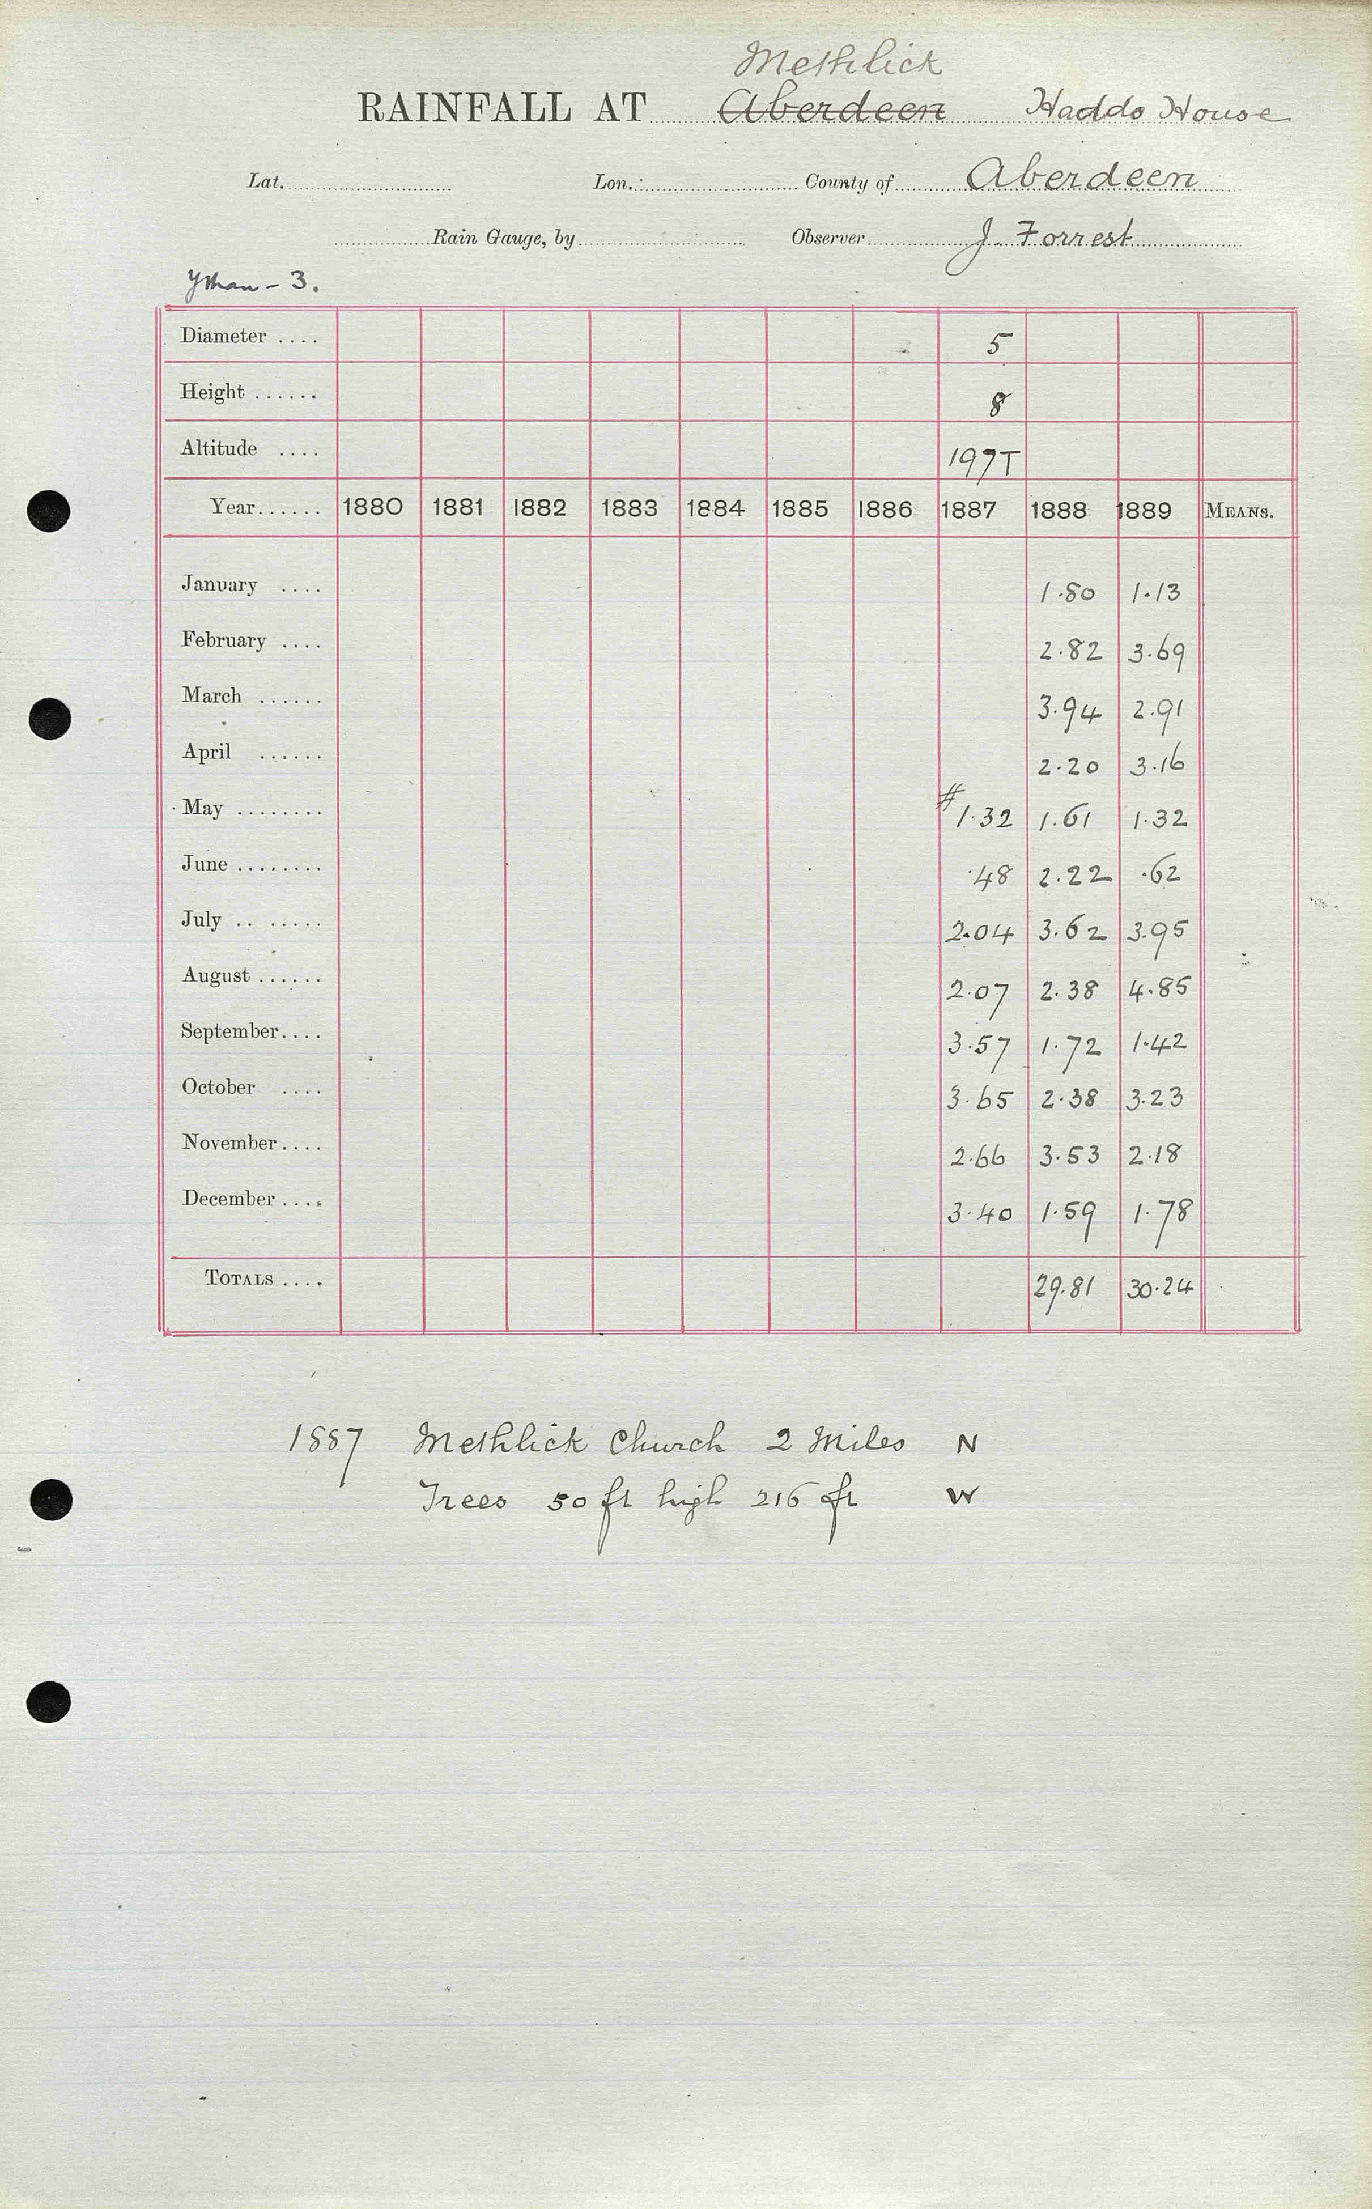 Methlick
RAINFALL AT Aberdeen Haddo House
Lat. Lon. County of Aberdeen
Rain Gauge, by Observer J. Forrest
Ythan - 3.
Diameter .... 5
Height ...... 8
Altitude .... 197T
Year...... 1880 1881 1882 1883 1884 1885 1886 1887 1888 1889 MEANS.
January .... 1.80 1.13
February .... 2.82 3.69
March ...... 3.94 2.91
April ...... 2.20 3.16
May ........ # 1.32 1.61 1.32
June ........ .48 2.22 .62
July .. ..... 2.04 3.62 3.95
August ...... 2.07 2.38 4.85
September.... 3.57 1.72 1.42
October .... 3.65 2.38 3.23
November.... 2.66 3.53 2.18
December .... 3.40 1.59 1.78
TOTALS .... 29.81 30.24
1887 Methlick Church 2 Miles N
Trees 50 ft high 216 ft W